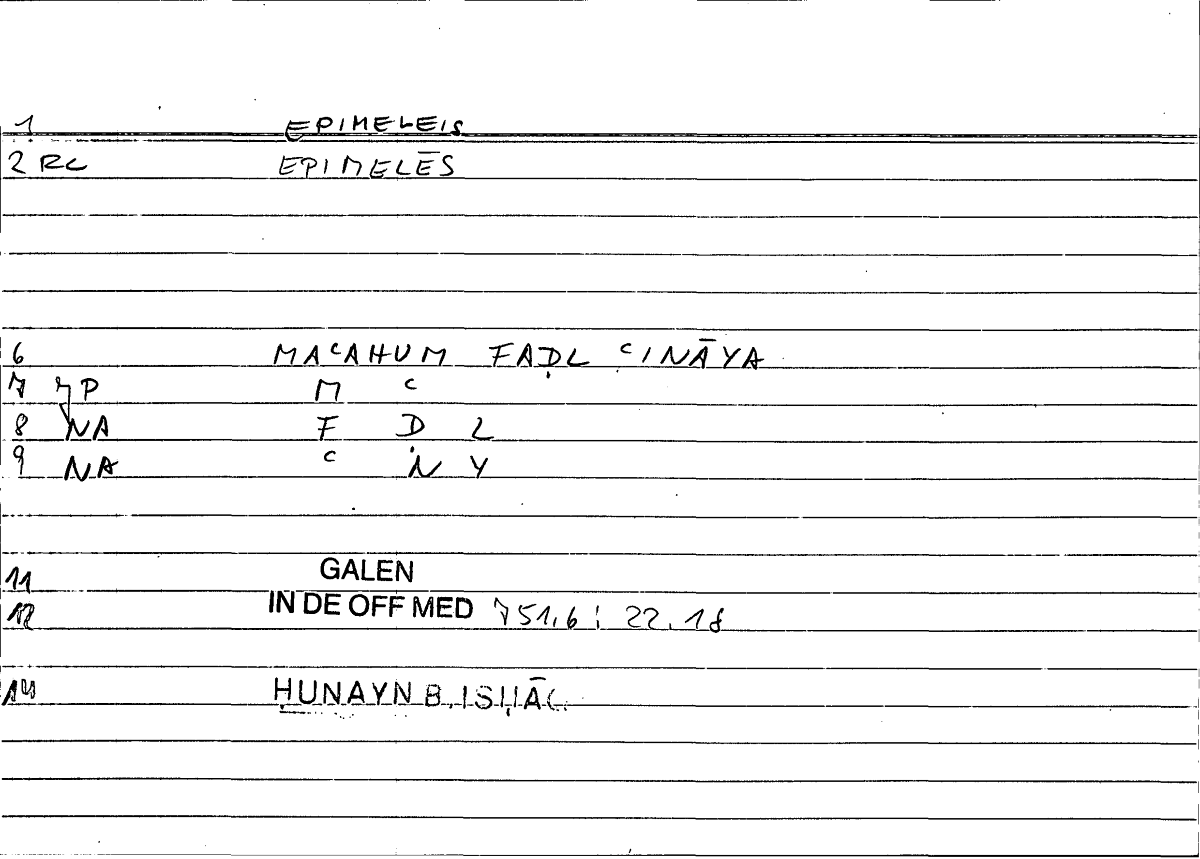 1 EPIMELEIS
2 RC EPIMELĒS
6 MAᶜAHUM FAḌL ᶜINĀYA
7 P M ᶜ
8 NA F Ḍ L
9 NA ᶜ N Y
11 GALEN
12 IN DE OFF MED 751.6 ; 22.18
14 ḤUNAYN B. ISḤĀ